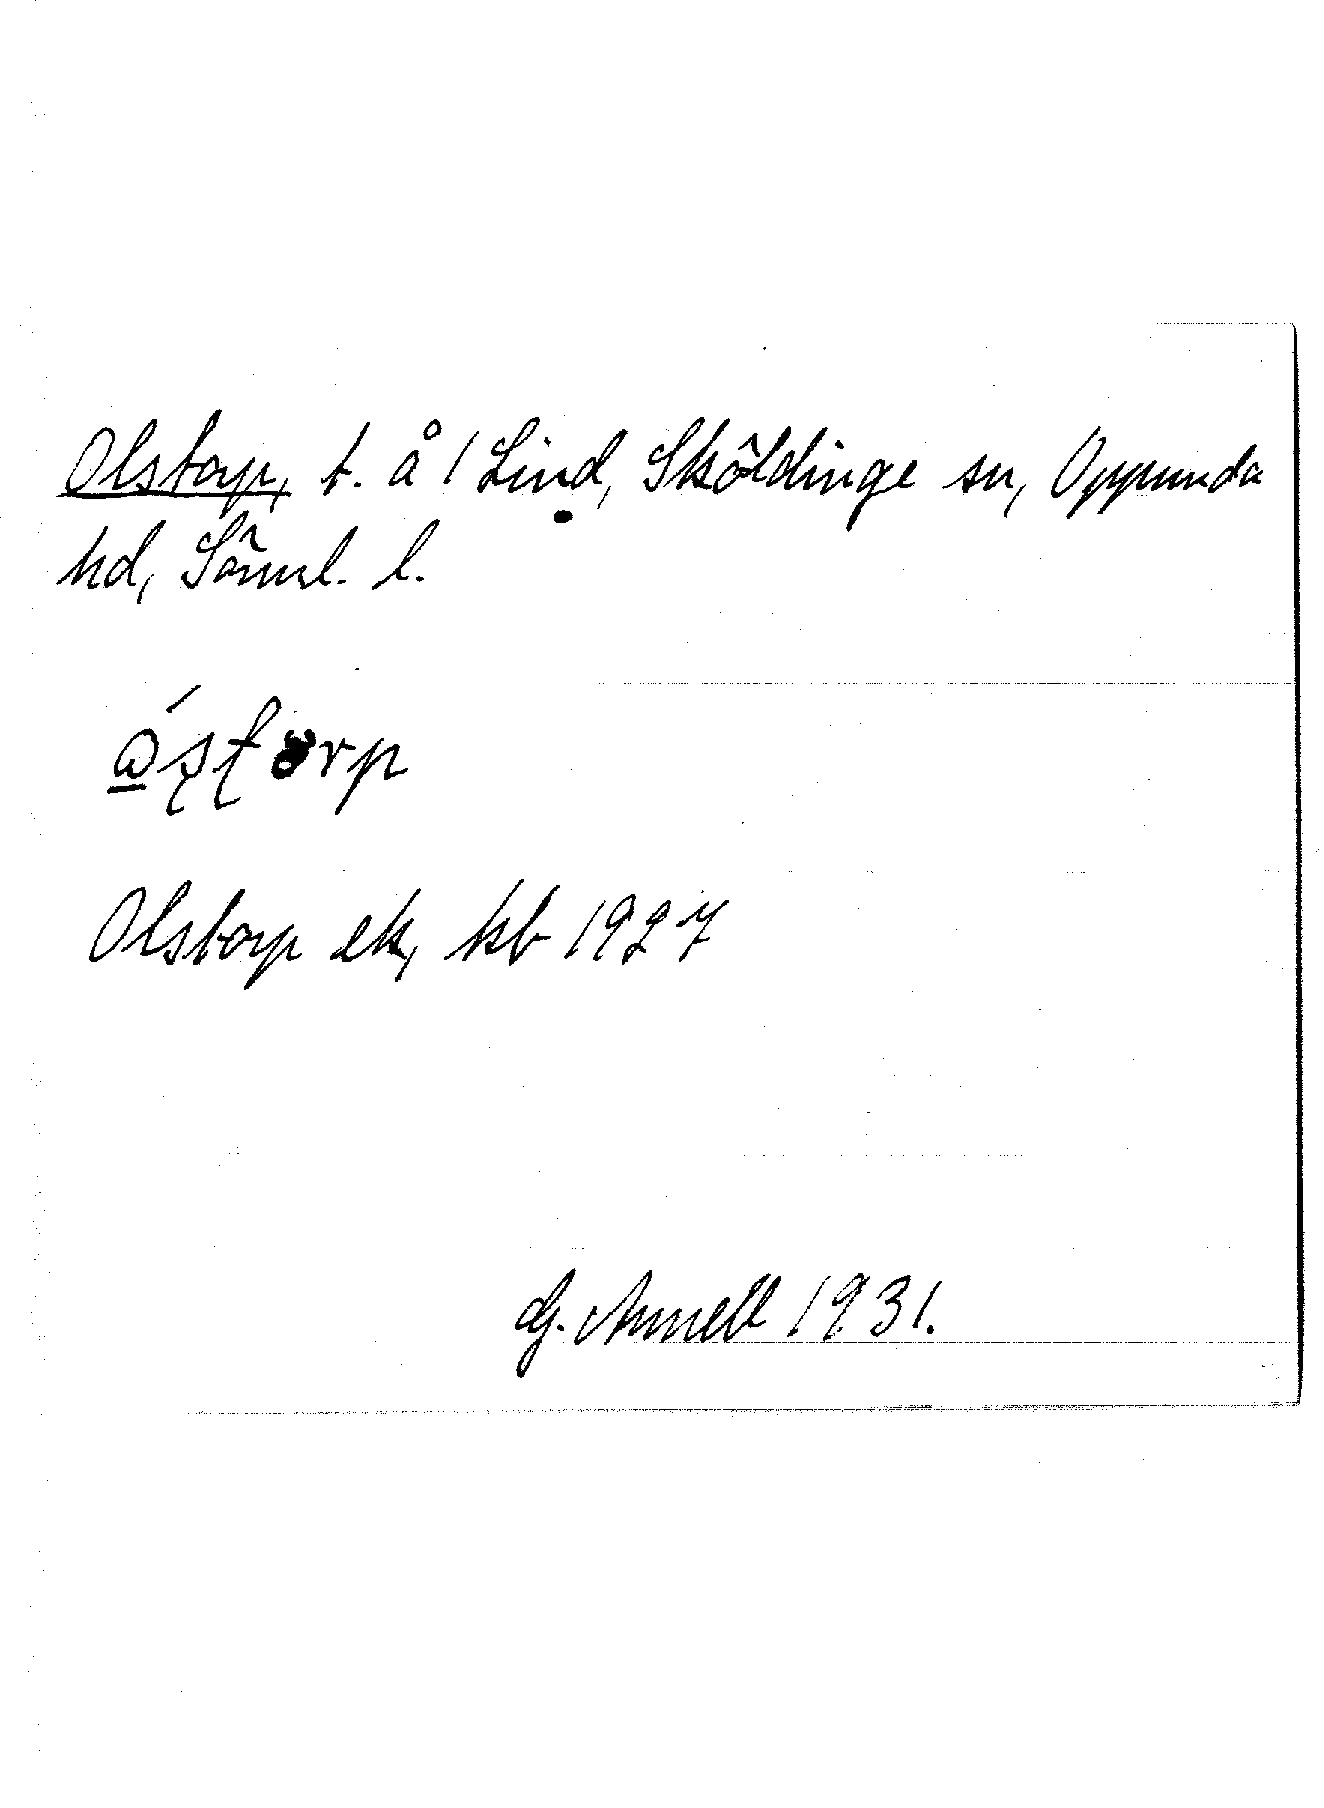 Olstorp, t. å 1 Lind, Sköldinge sn, Oppunda
hd, Sörml. l.
Olstorp ek, kb 1927
G. Annell 1931.